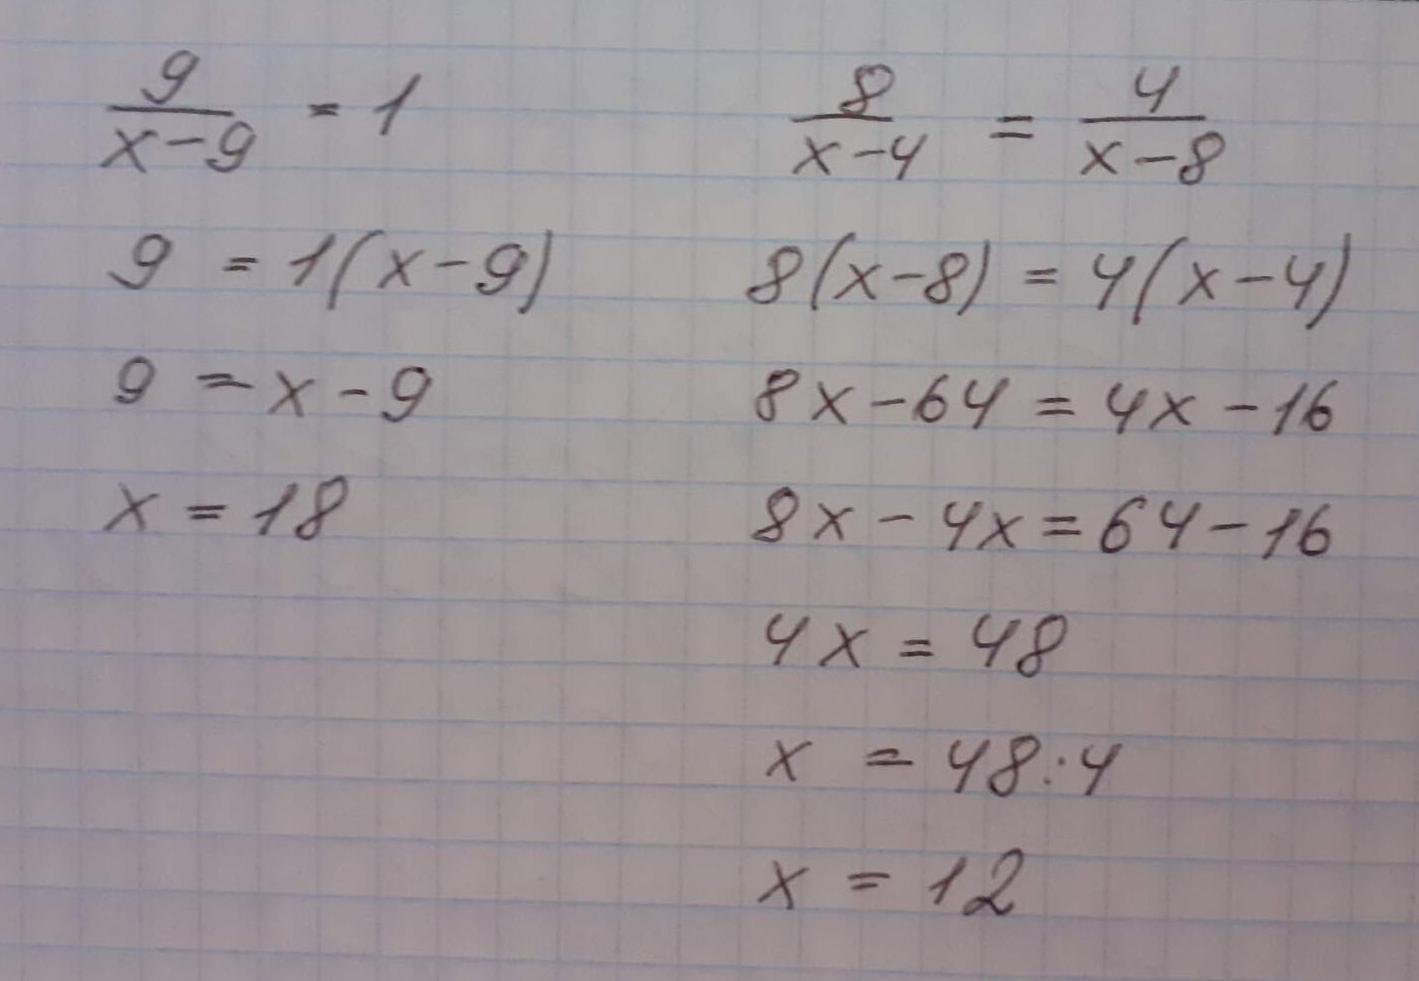 9/(x-9) = 1
9 = 1(x-9)
9 = x-9
x = 18
8/(x-4) = 4/(x-8)
8(x-8) = 4(x-4)
8x-64 = 4x-16
8x-4x = 64-16
4x = 48
x = 48:4
x = 12